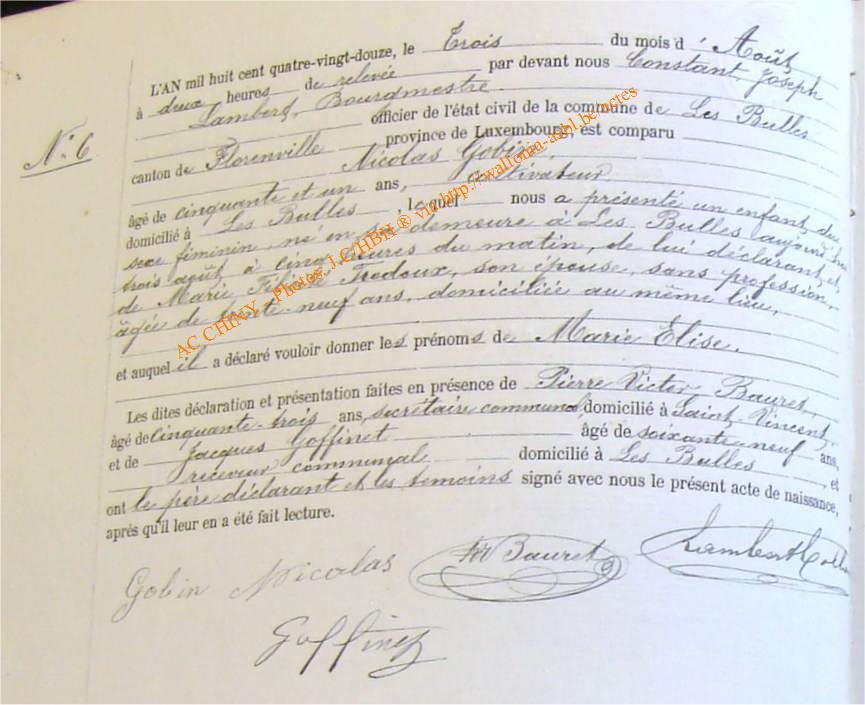 L'AN mil huit cent quatre-vingt-douze, le Trois du mois d'Août
à deux heures de relevée par devant nous Constant Joseph
Lambert, Bourgmestre
officier de l'état civil de la commune de Les Bulles
N° 6
canton de Florenville province de Luxembourg, est comparu
Nicolas Gobin,
âgé de cinquante et un ans, cultivateur
domicilié à Les Bulles, lequel nous a présenté un enfant du
sexe féminin, né en sa demeure à Les Bulles aujourd'hui
trois août à cinq heures du matin, de lui déclarant, et
de Marie Fedoux, son épouse, sans profession,
âgée de trente-neuf ans, domiciliée au même lieu,
et auquel il a déclaré vouloir donner les prénoms de Marie Elise.
Les dites déclaration et présentation faites en présence de Pierre Victor Bauret,
âgé de cinquante-trois ans, secrétaire communal, domicilié à Saint Vincent,
et de Jacques Goffinet âgé de soixante neuf ans,
receveur communal domicilié à Les Bulles, et
ont le père déclarant et les témoins signé avec nous le présent acte de naissance,
après qu'il leur en a été fait lecture.
Gobin Nicolas Bauret Lambert
Goffinet
AC CHINY - Photos J.C.HBH ® via http://wallonia-asbl.be/actes